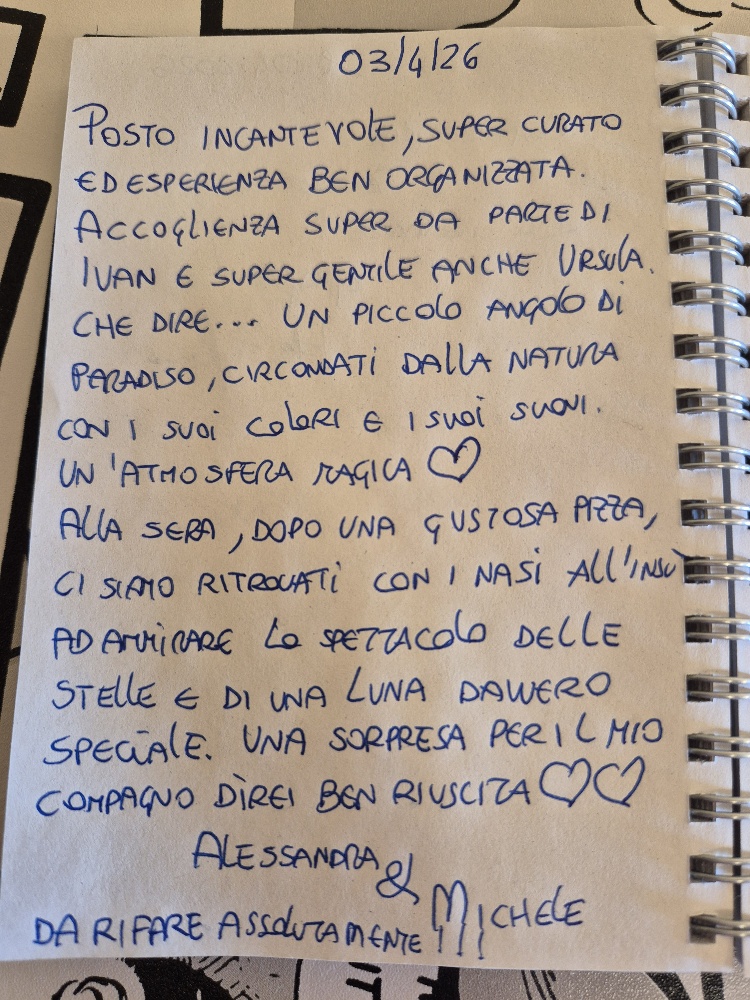 03/4/26
POSTO INCANTEVOLE, SUPER CURATO
ED ESPERIENZA BEN ORGANIZZATA.
ACCOGLIENZA SUPER DA PARTE DI
IVAN E SUPER GENTILE ANCHE URSULA.
CHE DIRE... UN PICCOLO ANGOLO DI
PARADISO, CIRCONDATI DALLA NATURA
CON I SUOI COLORI E I SUOI SUONI.
UN'ATMOSFERA MAGICA ♡
ALLA SERA, DOPO UNA GUSTOSA PIZZA,
CI SIAMO RITROVATI CON I NASI ALL'INSÙ
AD AMMIRARE LO SPETTACOLO DELLE
STELLE E DI UNA LUNA DAVVERO
SPECIALE. UNA SORPRESA PER IL MIO
COMPAGNO DIREI BEN RIUSCITA ♡♡
ALESSANDRA
& MICHELE
DA RIFARE ASSOLUTAMENTE!!!